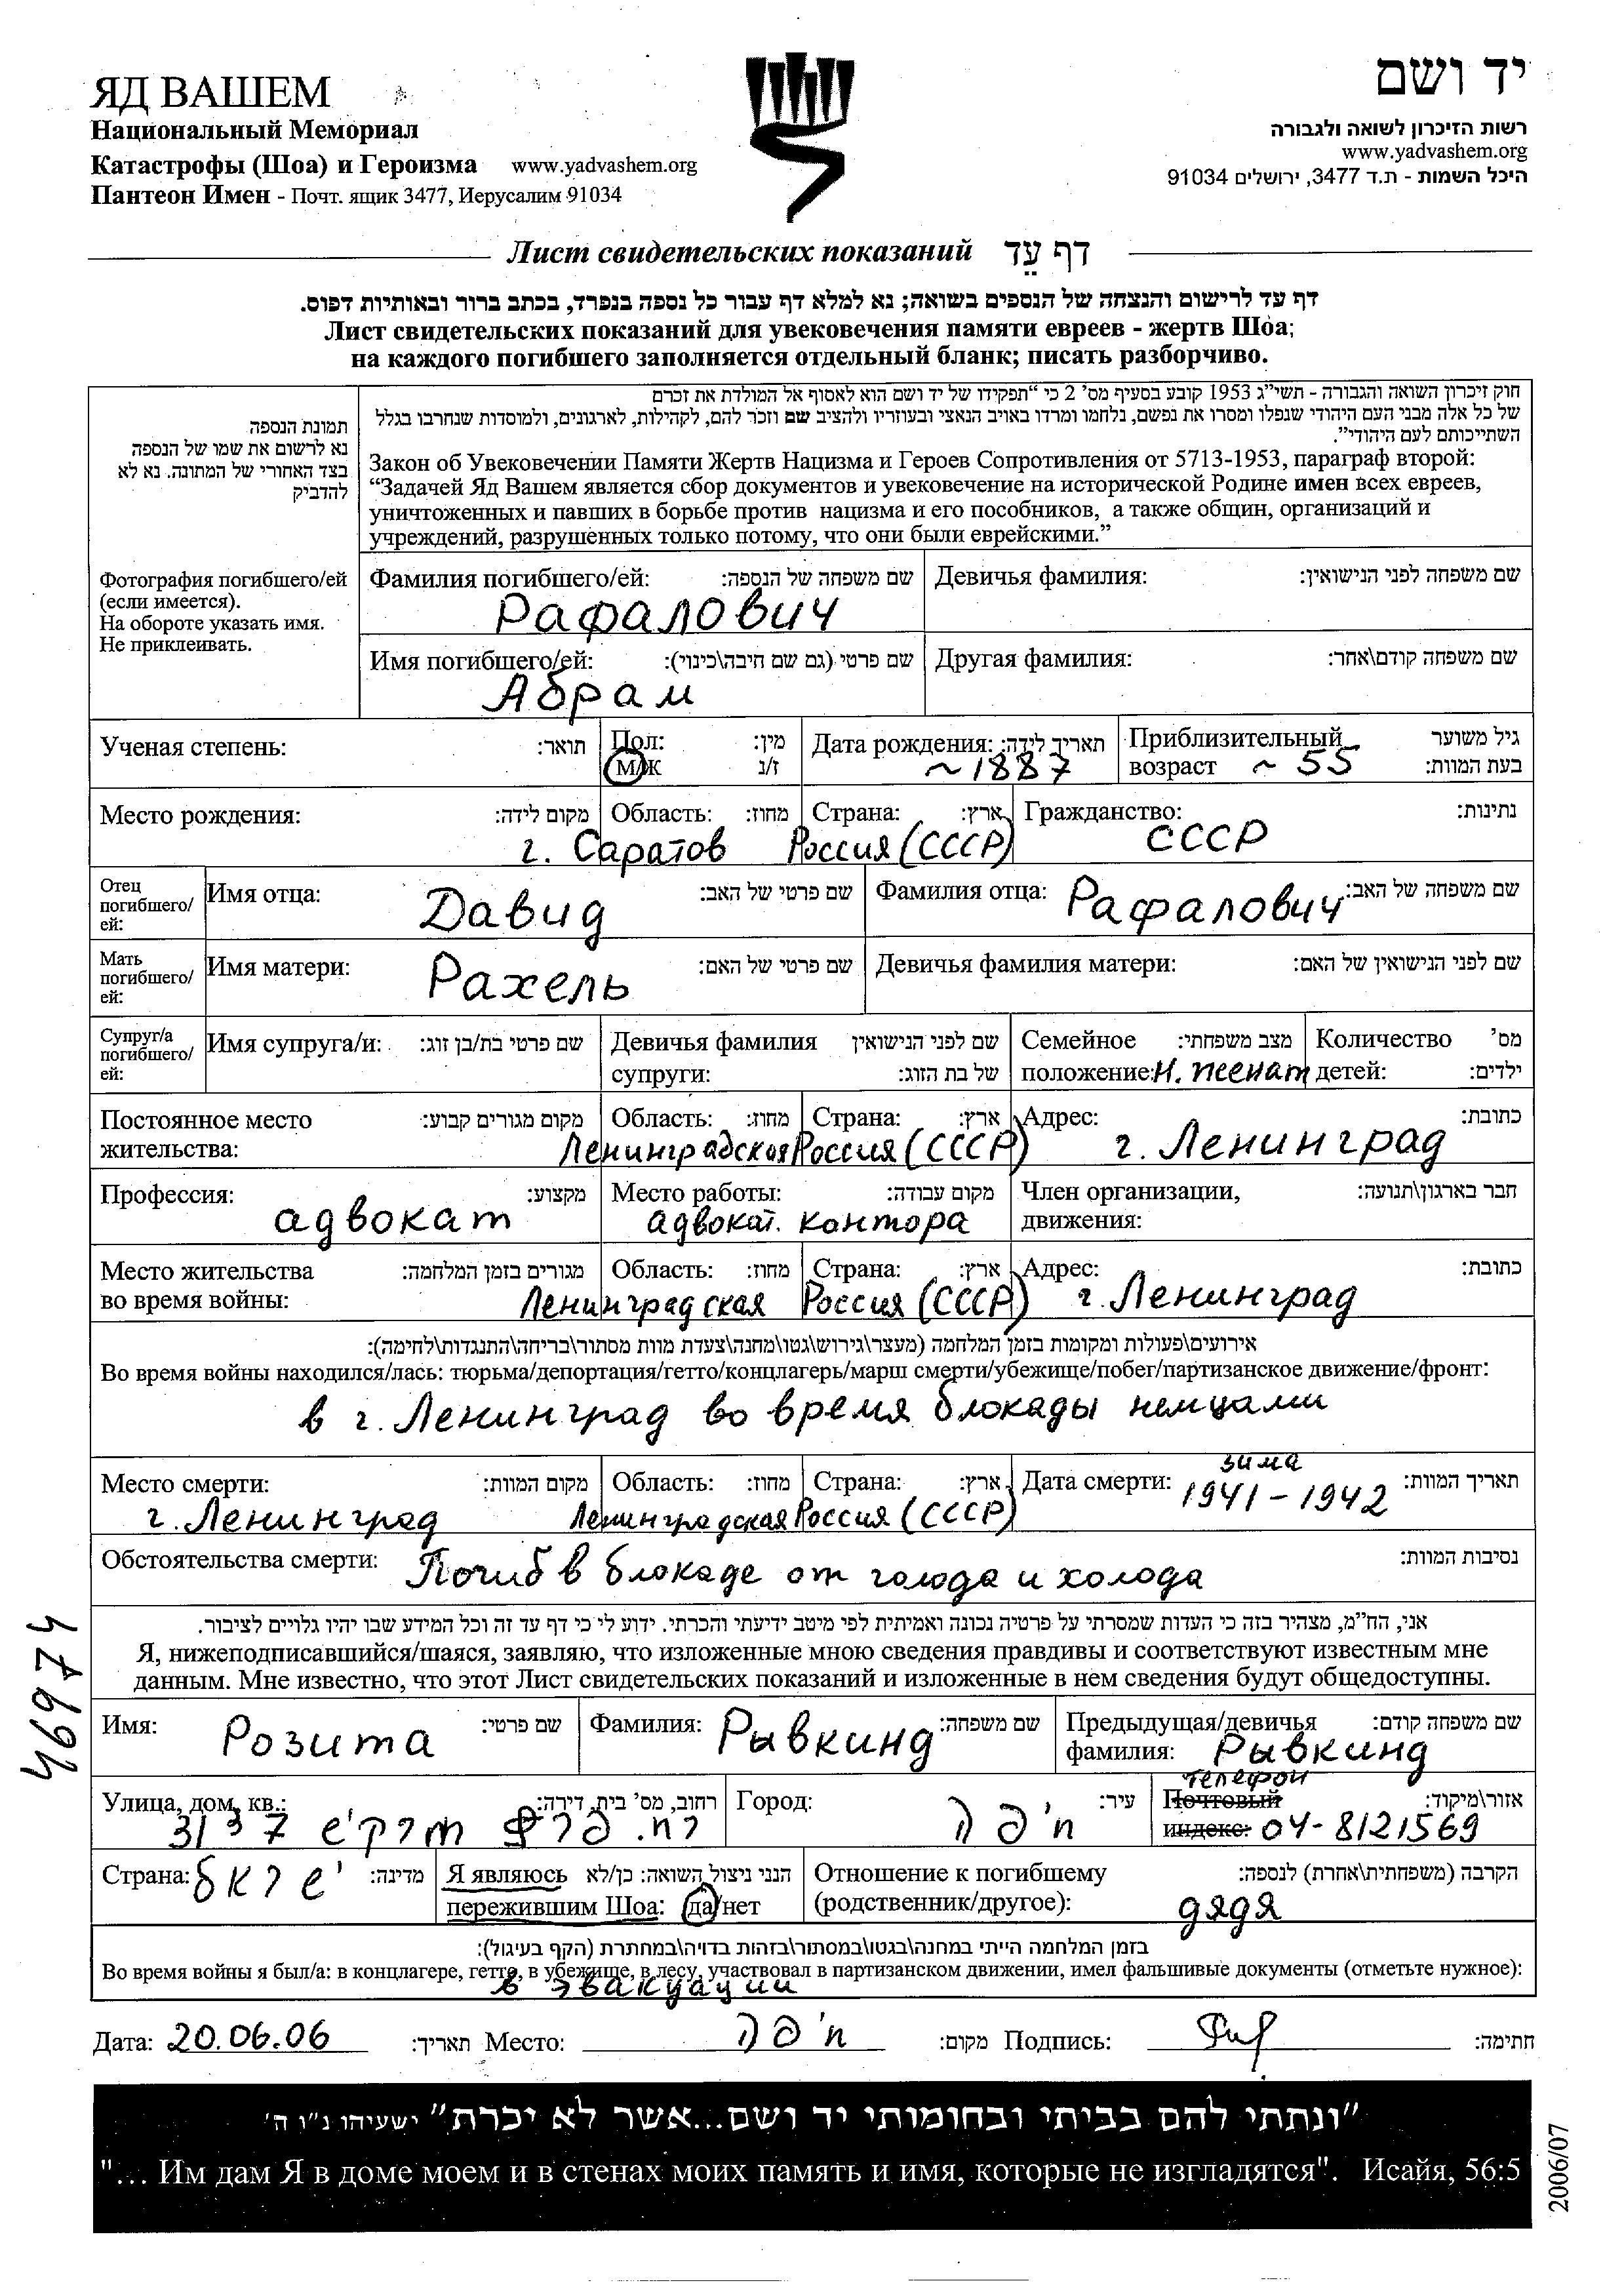 ЯД ВАШЕМ
Национальный Мемориал
Катастрофы (Шоа) и Героизма www.yadvashem.org
Пантеон Имен - Почт. ящик 3477, Иерусалим 91034
יד ושם
רשות הזיכרון לשואה ולגבורה
www.yadvashem.org
היכל השמות - ת.ד 3477, ירושלים 91034
Лист свидетельских показаний דף עֵד
דף עד לרישום והנצחה של הנספים בשואה; נא למלא דף עבור כל נספה בנפרד, בכתב ברור ובאותיות דפוס.
Лист свидетельских показаний для увековечения памяти евреев - жертв Шоа;
на каждого погибшего заполняется отдельный бланк; писать разборчиво.
תמונת הנספה
נא לרשום את שמו של הנספה
בצד האחורי של המתונה. נא לא
להדביק
Фотография погибшего/ей
(если имеется).
На обороте указать имя.
Не приклеивать.
חוק זיכרון השואה והגבורה - תשי"ג 1953 קובע בסעיף מס' 2 כי "תפקידו של יד ושם הוא לאסוף אל המולדת את זכרם
של כל אלה מבני העם היהודי שנפלו ומסרו את נפשם, נלחמו ומרדו באויב הנאצי ובעוזריו ולהציב שם וזכר להם, לקהילות, לארגונים, ולמוסדות שנחרבו בגלל
השתייכותם לעם היהודי".
Закон об Увековечении Памяти Жертв Нацизма и Героев Сопротивления от 5713-1953, параграф второй:
"Задачей Яд Вашем является сбор документов и увековечение на исторической Родине имен всех евреев,
уничтоженных и павших в борьбе против нацизма и его пособников, а также общин, организаций и
учреждений, разрушенных только потому, что они были еврейскими."
Фамилия погибшего/ей: שם משפחה של הנספה: Девичья фамилия: שם משפחה לפני הנישואין:
Рафалович
Имя погибшего/ей: שם פרטי (גם שם חיבה\כינוי): Другая фамилия: שם משפחה קודם\אחר:
Абрам
Ученая степень: תואר: Пол: מין: Дата рождения: תאריך לידה: Приблизительный גיל משוער
М/Ж ז/נ ~1887 возраст ~ 55 בעת המוות:
Место рождения: מקום לידה: Область: מחוז: Страна: ארץ: Гражданство: נתינות:
г. Саратов Россия (СССР) СССР
Отец погибшего/ей: Имя отца: Давид שם פרטי של האב: Фамилия отца: Рафалович שם משפחה של האב:
Мать погибшего/ей: Имя матери: Рахель שם פרטי של האם: Девичья фамилия матери: שם לפני הנישואין של האם:
Супруг/а погибшего/ей: Имя супруга/и: שם פרטי בת/בן זוג: Девичья фамилия שם לפני הנישואין Семейное מצב משפחתי: Количество מס'
супруги: של בת הזוג: положение: н. женат детей: ילדים:
Постоянное место מקום מגורים קבוע: Область: מחוז: Страна: ארץ: Адрес: כתובת:
жительства: Ленинградская Россия (СССР) г. Ленинград
Профессия: מקצוע: Место работы: מקום עבודה: Член организации, חבר בארגון\תנועה:
адвокат адвокат. контора движения:
Место жительства מגורים בזמן המלחמה: Область: מחוז: Страна: ארץ: Адрес: כתובת:
во время войны: Ленинградская Россия (СССР) г. Ленинград
אירועים\פעולות ומקומות בזמן המלחמה (מעצר\גירוש\גטו\מחנה\צעדת מוות מסתור\בריחה\התנגדות\לחימה):
Во время войны находился/лась: тюрьма/депортация/гетто/концлагерь/марш смерти/убежище/побег/партизанское движение/фронт:
в г. Ленинград во время блокады немцами
Место смерти: מקום המוות: Область: מחוז: Страна: ארץ: Дата смерти: зима תאריך המוות:
г. Ленинград Ленинградская Россия (СССР) 1941-1942
Обстоятельства смерти: Погиб в блокаде от голода и холода נסיבות המוות:
אני, הח"מ, מצהיר בזה כי העדות שמסרתי על פרטיה נכונה ואמיתית לפי מיטב ידיעתי והכרתי. ידוע לי כי דף עד זה וכל המידע שבו יהיו גלויים לציבור.
Я, нижеподписавшийся/шаяся, заявляю, что изложенные мною сведения правдивы и соответствуют известным мне
данным. Мне известно, что этот Лист свидетельских показаний и изложенные в нем сведения будут общедоступны.
Имя: Розита שם פרטי: Фамилия: Рывкинд שם משפחה: Предыдущая/девичья שם משפחה קודם:
фамилия: Рывкинд
Улица, дом, кв.: רחוב, מס' בית, דירה: Город: עיר: Почтовый телефон אזור\מיקוד:
31 חיפה индекс: 04-8121569
Страна: ישראל מדינה: Я являюсь הנני ניצול השואה: כן/לא Отношение к погибшему הקרבה (משפחתית\אחרת) לנספה:
пережившим Шоа: да/нет (родственник/другое): дядя
בזמן המלחמה הייתי במחנה\בגטו\במסתור\בזהות בדויה\במחתרת (הקף בעיגול):
Во время войны я был/а: в концлагере, гетто, в убежище, в лесу, участвовал в партизанском движении, имел фальшивые документы (отметьте нужное):
в эвакуации
Дата: 20.06.06 תאריך: Место: חיפה מקום: Подпись: חתימה:
"ונתתי להם בביתי ובחומותי יד ושם...אשר לא יכרת" ישעיהו נ"ו ה'
"... Им дам Я в доме моем и в стенах моих память и имя, которые не изгладятся". Исайя, 56:5
46974
2006/07